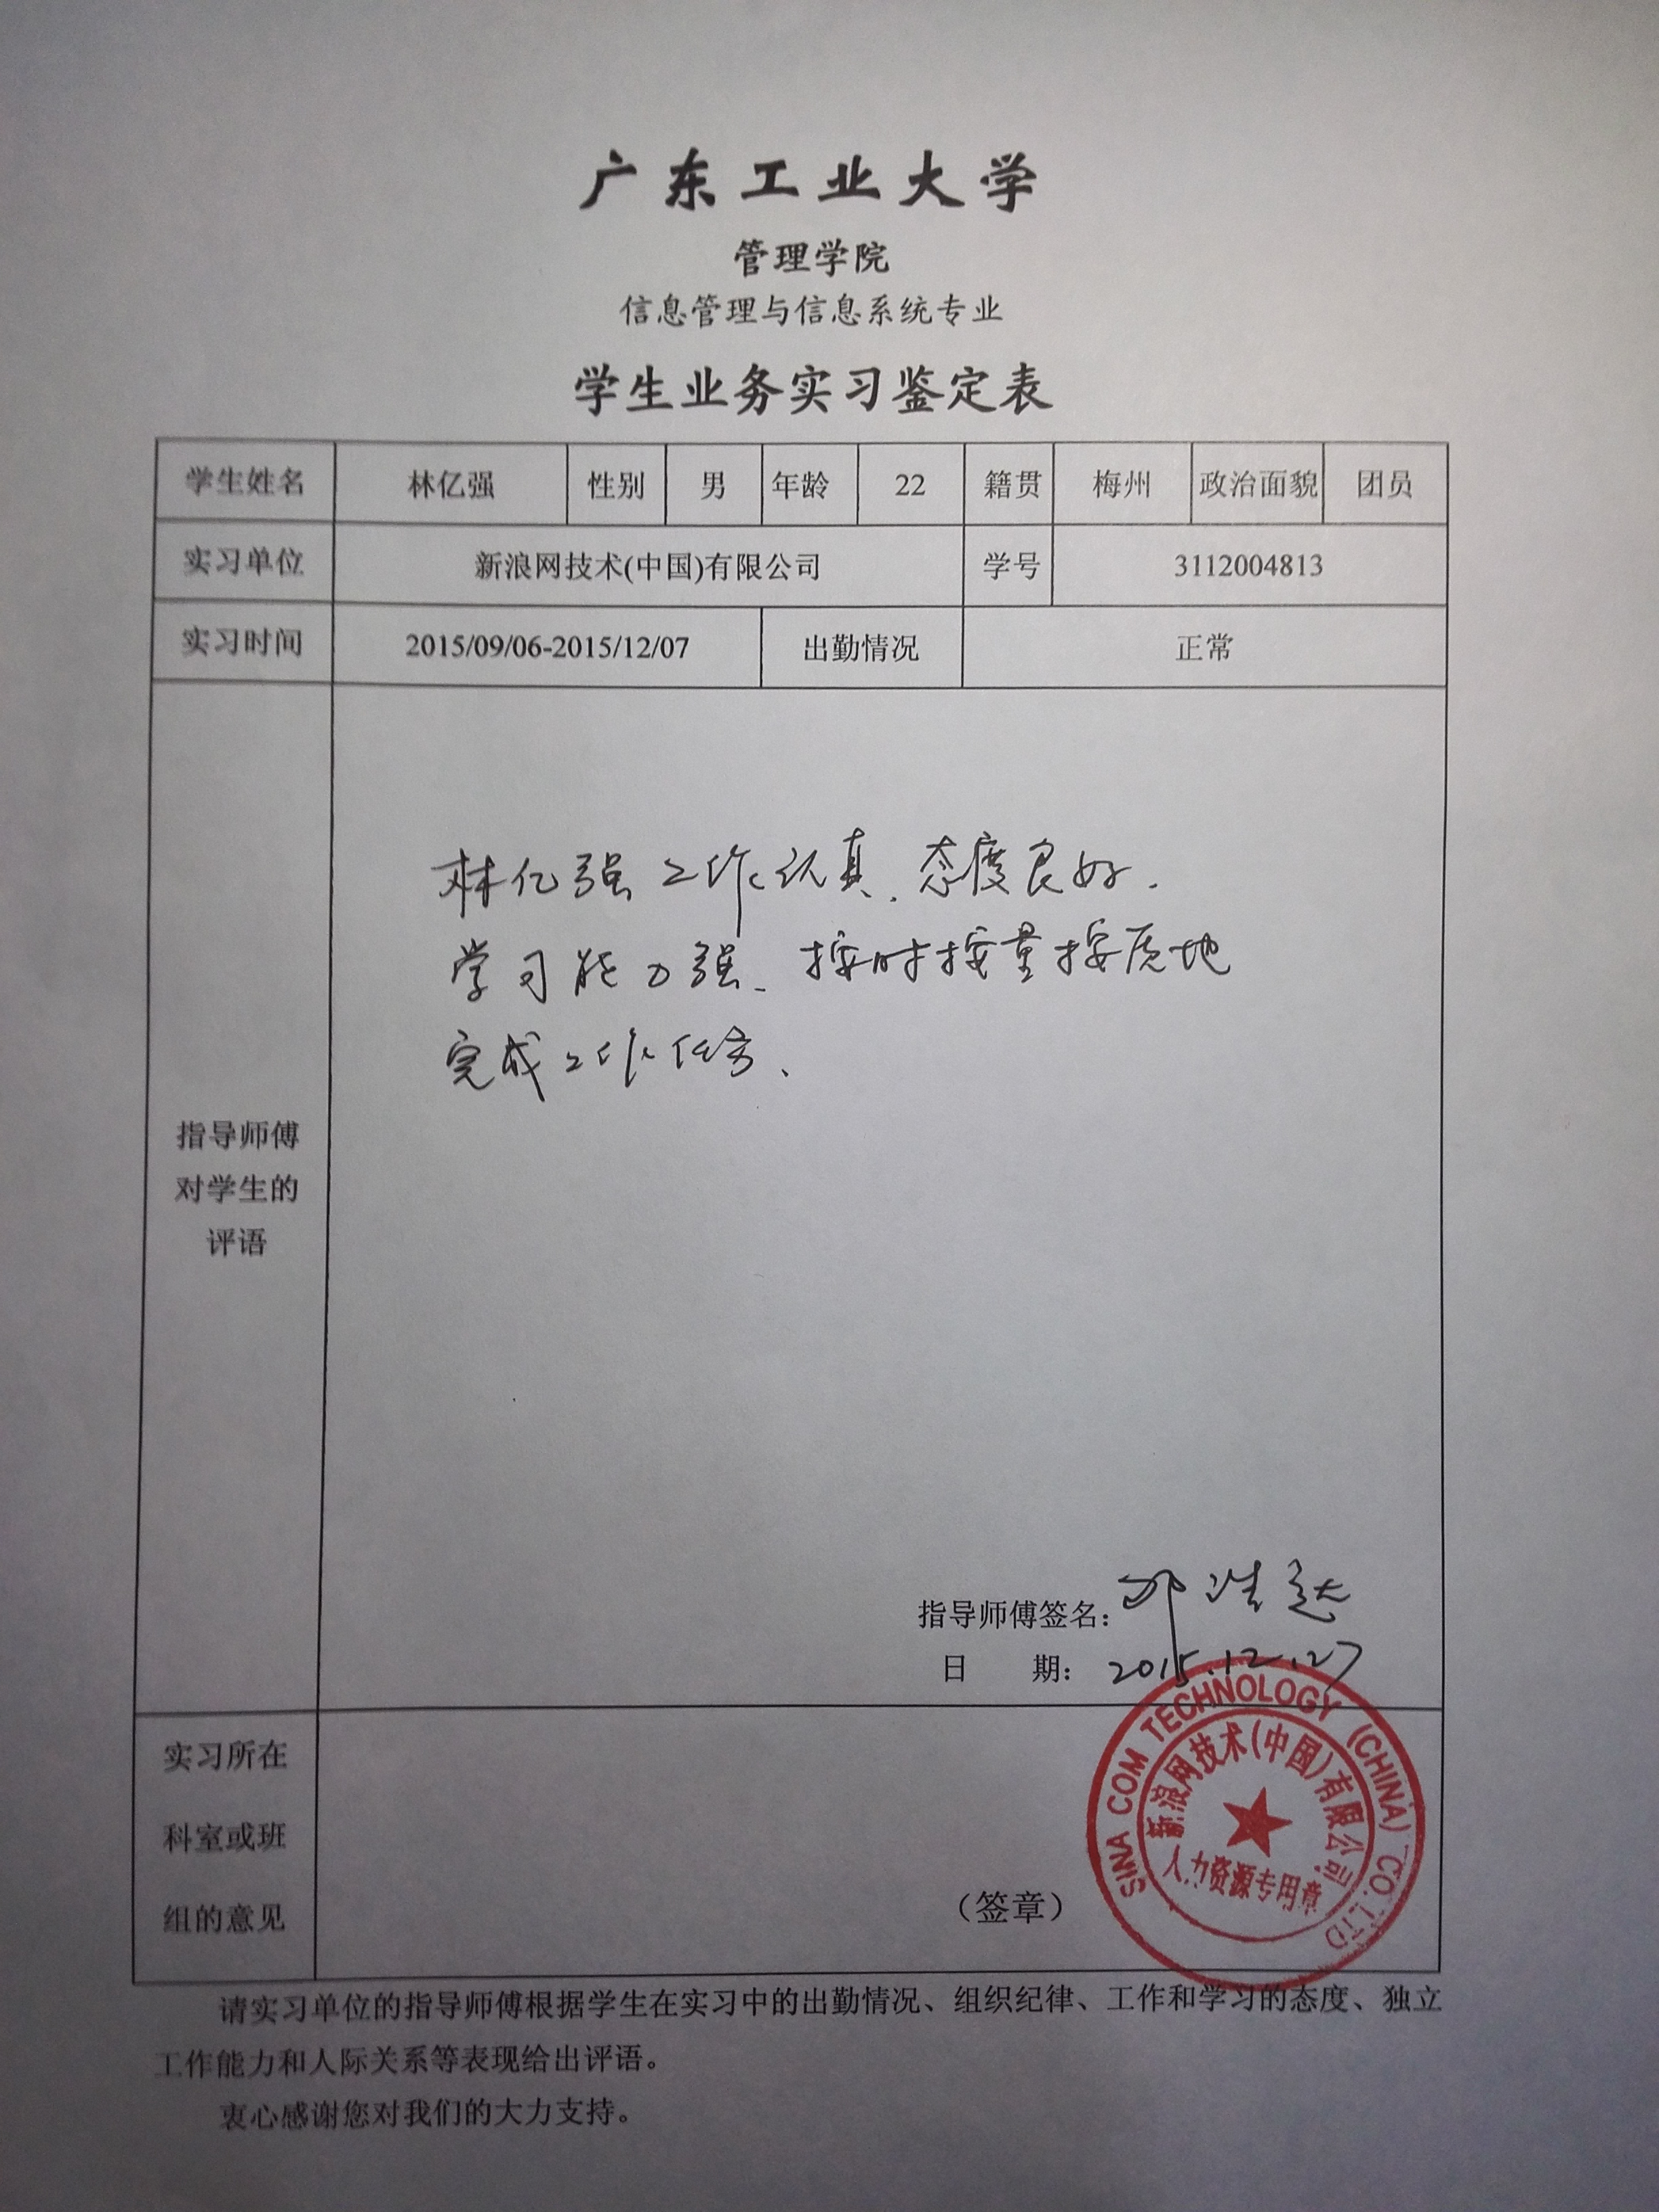 广东工业大学
管理学院
信息管理与信息系统专业
学生业务实习鉴定表
学生姓名 林亿强 性别 男 年龄 22 籍贯 梅州 政治面貌 团员
实习单位 新浪网技术(中国)有限公司 学号 3112004813
实习时间 2015/09/06-2015/12/07 出勤情况 正常
指导师傅
对学生的
评语
林亿强工作认真、态度良好.
学习能力强、按时按量按质地
完成工作任务、
指导师傅签名:
日 期: 2015.12.27
实习所在
科室或班
组的意见
(签章)
SINA COM TECHNOLOGY (CHINA) CO. LTD
新浪网技术(中国)有限公司
人力资源专用章
请实习单位的指导师傅根据学生在实习中的出勤情况、组织纪律、工作和学习的态度、独立
工作能力和人际关系等表现给出评语。
衷心感谢您对我们的大力支持。